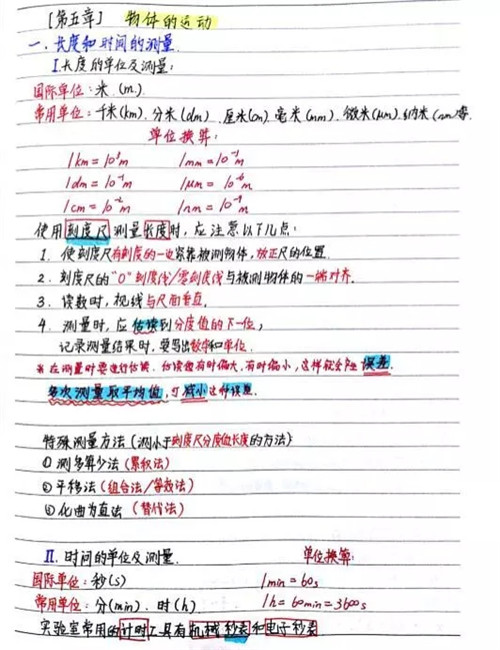 [第五章] 物体的运动
一、长度和时间的测量
I.长度的单位及测量:
国际单位:米(m)
常用单位:千米(km).分米(dm).厘米(cm).毫米(mm).微米(μm).纳米(nm)等
单位换算:
1km=10³m 1mm=10⁻³m
1dm=10⁻¹m 1μm=10⁻⁶m
1cm=10⁻²m 1nm=10⁻⁹m
使用刻度尺测量长度时,应注意以下几点:
1. 使刻度尺有刻度的一边紧靠被测物体,放正尺的位置.
2. 刻度尺的"0"刻度线/零刻度线与被测物体的一端对齐.
3. 读数时,视线与尺面垂直.
4. 测量时,应估读到分度值的下一位;
记录测量结果时,要写出数字和单位.
※在测量时要进行估读,估读值有时偏大,有时偏小,这样就会产生误差.
多次测量取平均值,可减小这种误差.
特殊测量方法(测小于刻度尺分度值长度的方法)
①测多算少法(累积法)
②平移法(组合法/等效法)
③化曲为直法(替代法)
II. 时间的单位及测量. 单位换算:
国际单位:秒(s) 1min=60s
常用单位:分(min).时(h). 1h=60min=3600s
实验室常用的计时工具有机械秒表和电子秒表